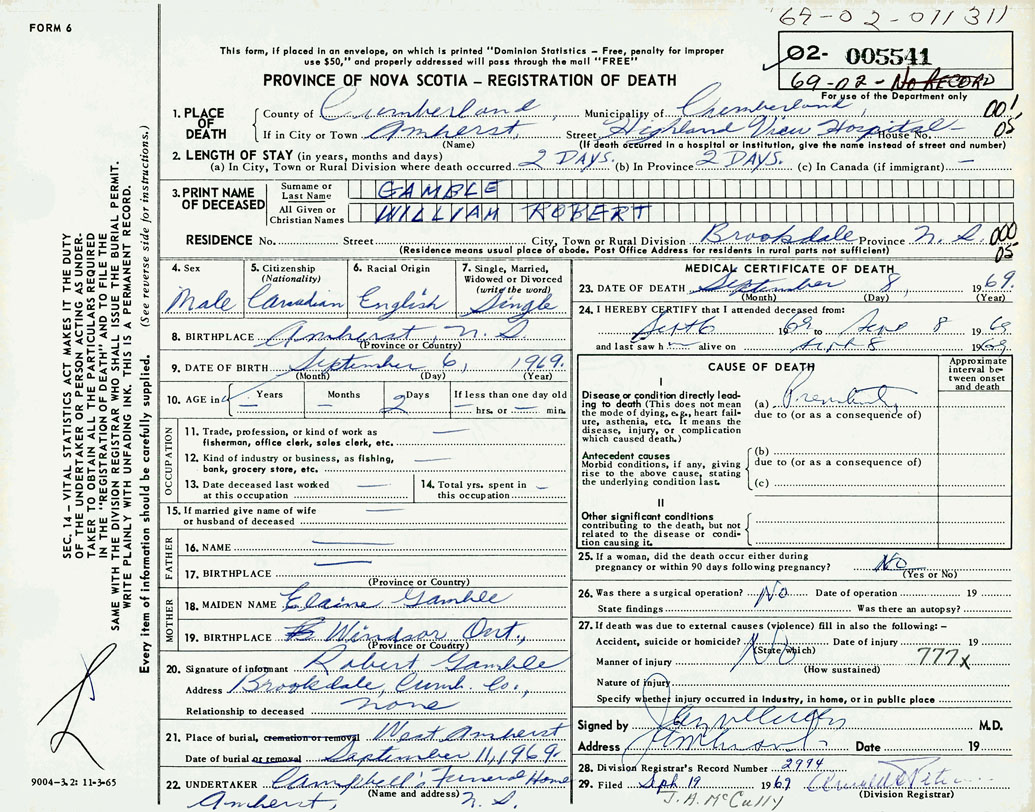 FORM 6
69-02-011311
02- 005541
69-02- NO RECORD
For use of the Department only
This form, if placed in an envelope, on which is printed "Dominion Statistics - Free, penalty for improper
use $50," and properly addressed will pass through the mail "FREE"
PROVINCE OF NOVA SCOTIA - REGISTRATION OF DEATH
1. PLACE OF DEATH
County of Cumberland Municipality of Cumberland
001
If in City or Town Amherst Street Highland View Hospital House No. -
05
(Name) (If death occurred in a hospital or institution, give the name instead of street and number)
2. LENGTH OF STAY (in years, months and days)
(a) In City, Town or Rural Division where death occurred 2 DAYS. (b) In Province 2 DAYS. (c) In Canada (if immigrant) -
3. PRINT NAME OF DECEASED
Surname or Last Name GAMBLE
All Given or Christian Names WILLIAM ROBERT
RESIDENCE No. Street City, Town or Rural Division Brookdale Province N. S.
000
05
(Residence means usual place of abode. Post Office Address for residents in rural parts not sufficient)
4. Sex
Male
5. Citizenship (Nationality)
Canadian
6. Racial Origin
English
7. Single, Married, Widowed or Divorced (write the word)
Single
8. BIRTHPLACE Amherst N. S.
(Province or Country)
9. DATE OF BIRTH September 6, 1969.
(Month) (Day) (Year)
10. AGE in
Years - Months - Days 2
If less than one day old
- hrs. or - min.
OCCUPATION
11. Trade, profession, or kind of work as fisherman, office clerk, sales clerk, etc. -
12. Kind of industry or business, as fishing, bank, grocery store, etc. -
13. Date deceased last worked at this occupation -
14. Total yrs. spent in this occupation -
15. If married give name of wife or husband of deceased -
FATHER
16. NAME -
17. BIRTHPLACE -
(Province or Country)
MOTHER
18. MAIDEN NAME Elaine Gamble
19. BIRTHPLACE Windsor Ont.,
(Province or Country)
20. Signature of informant Robert Gamble
Address Brookdale, Cumb. Co.,
Relationship to deceased none
21. Place of burial, cremation or removal West Amherst
Date of burial or removal September 11, 1969.
22. UNDERTAKER Campbell's Funeral Home
(Name and address)
Amherst, N. S.
MEDICAL CERTIFICATE OF DEATH
23. DATE OF DEATH September 8, 1969.
(Month) (Day) (Year)
24. I HEREBY CERTIFY that I attended deceased from:
Sept 6 1969 to Sept 8 1969
and last saw h alive on Sept 8 1969.
CAUSE OF DEATH
Approximate interval between onset and death
I
Disease or condition directly leading to death (This does not mean the mode of dying, e.g., heart failure, asthenia, etc. It means the disease, injury, or complication which caused death.)
(a) Prematurity
due to (or as a consequence of)
Antecedent causes
Morbid conditions, if any, giving rise to the above cause, stating the underlying condition last.
(b)
due to (or as a consequence of)
(c)
II
Other significant conditions
contributing to the death, but not related to the disease or condition causing it.
25. If a woman, did the death occur either during pregnancy or within 90 days following pregnancy? No
(Yes or No)
26. Was there a surgical operation? No Date of operation 19
State findings Was there an autopsy?
27. If death was due to external causes (violence) fill in also the following: -
Accident, suicide or homicide? No Date of injury 19
(State which)
Manner of injury 777x
(How sustained)
Nature of injury
Specify whether injury occurred in industry, in home, or in public place
Signed by M.D.
Address Amherst Date 19
28. Division Registrar's Record Number 2994
29. Filed Sept 19 1969
J. A. McCully
(Division Registrar)
SEC. 14 - VITAL STATISTICS ACT MAKES IT THE DUTY
OF THE UNDERTAKER OR PERSON ACTING AS UNDER-
TAKER TO OBTAIN ALL THE PARTICULARS REQUIRED
IN THE "REGISTRATION OF DEATH" AND TO FILE THE
SAME WITH THE DIVISION REGISTRAR WHO SHALL ISSUE THE BURIAL PERMIT.
WRITE PLAINLY WITH UNFADING INK. THIS IS A PERMANENT RECORD.
Every item of information should be carefully supplied. (See reverse side for instructions.)
9004-3.2: 11-3-65